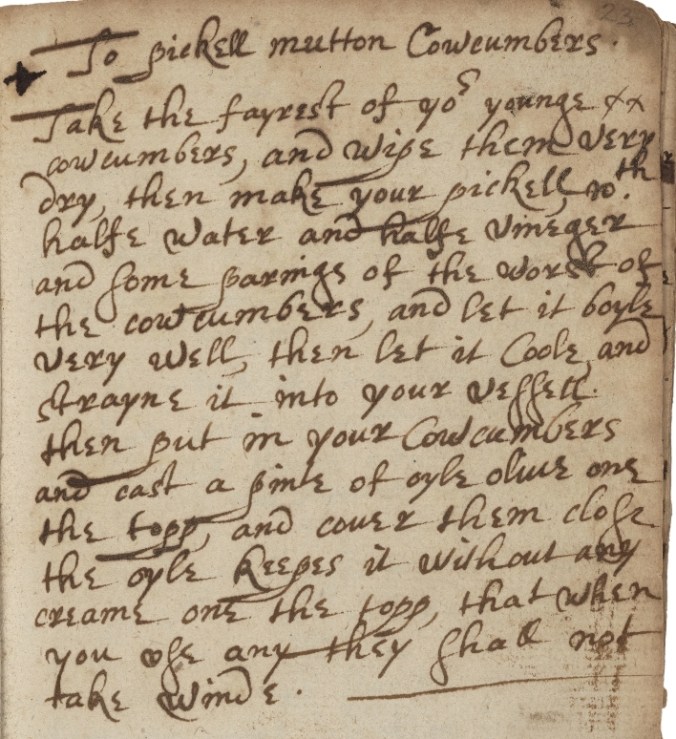 23
To pickell mutton Cowcumbers.
Take the fayrest of yoʳ younge xx
cowcumbers, and wipe them very
dry, then make your pickell, wᵗʰ
halfe water and halfe vineger
and some parings of the worst of
the cowcumbers, and let it boyle
very well, then let it Coole, and
strayne it into your vessell.
then put in your Cowcumbers
and cast a pinte of oyle olive one
the topp, and cover them close
the oyle keepes it without any
creame one the topp, that when
you use any they shall not
take winde.